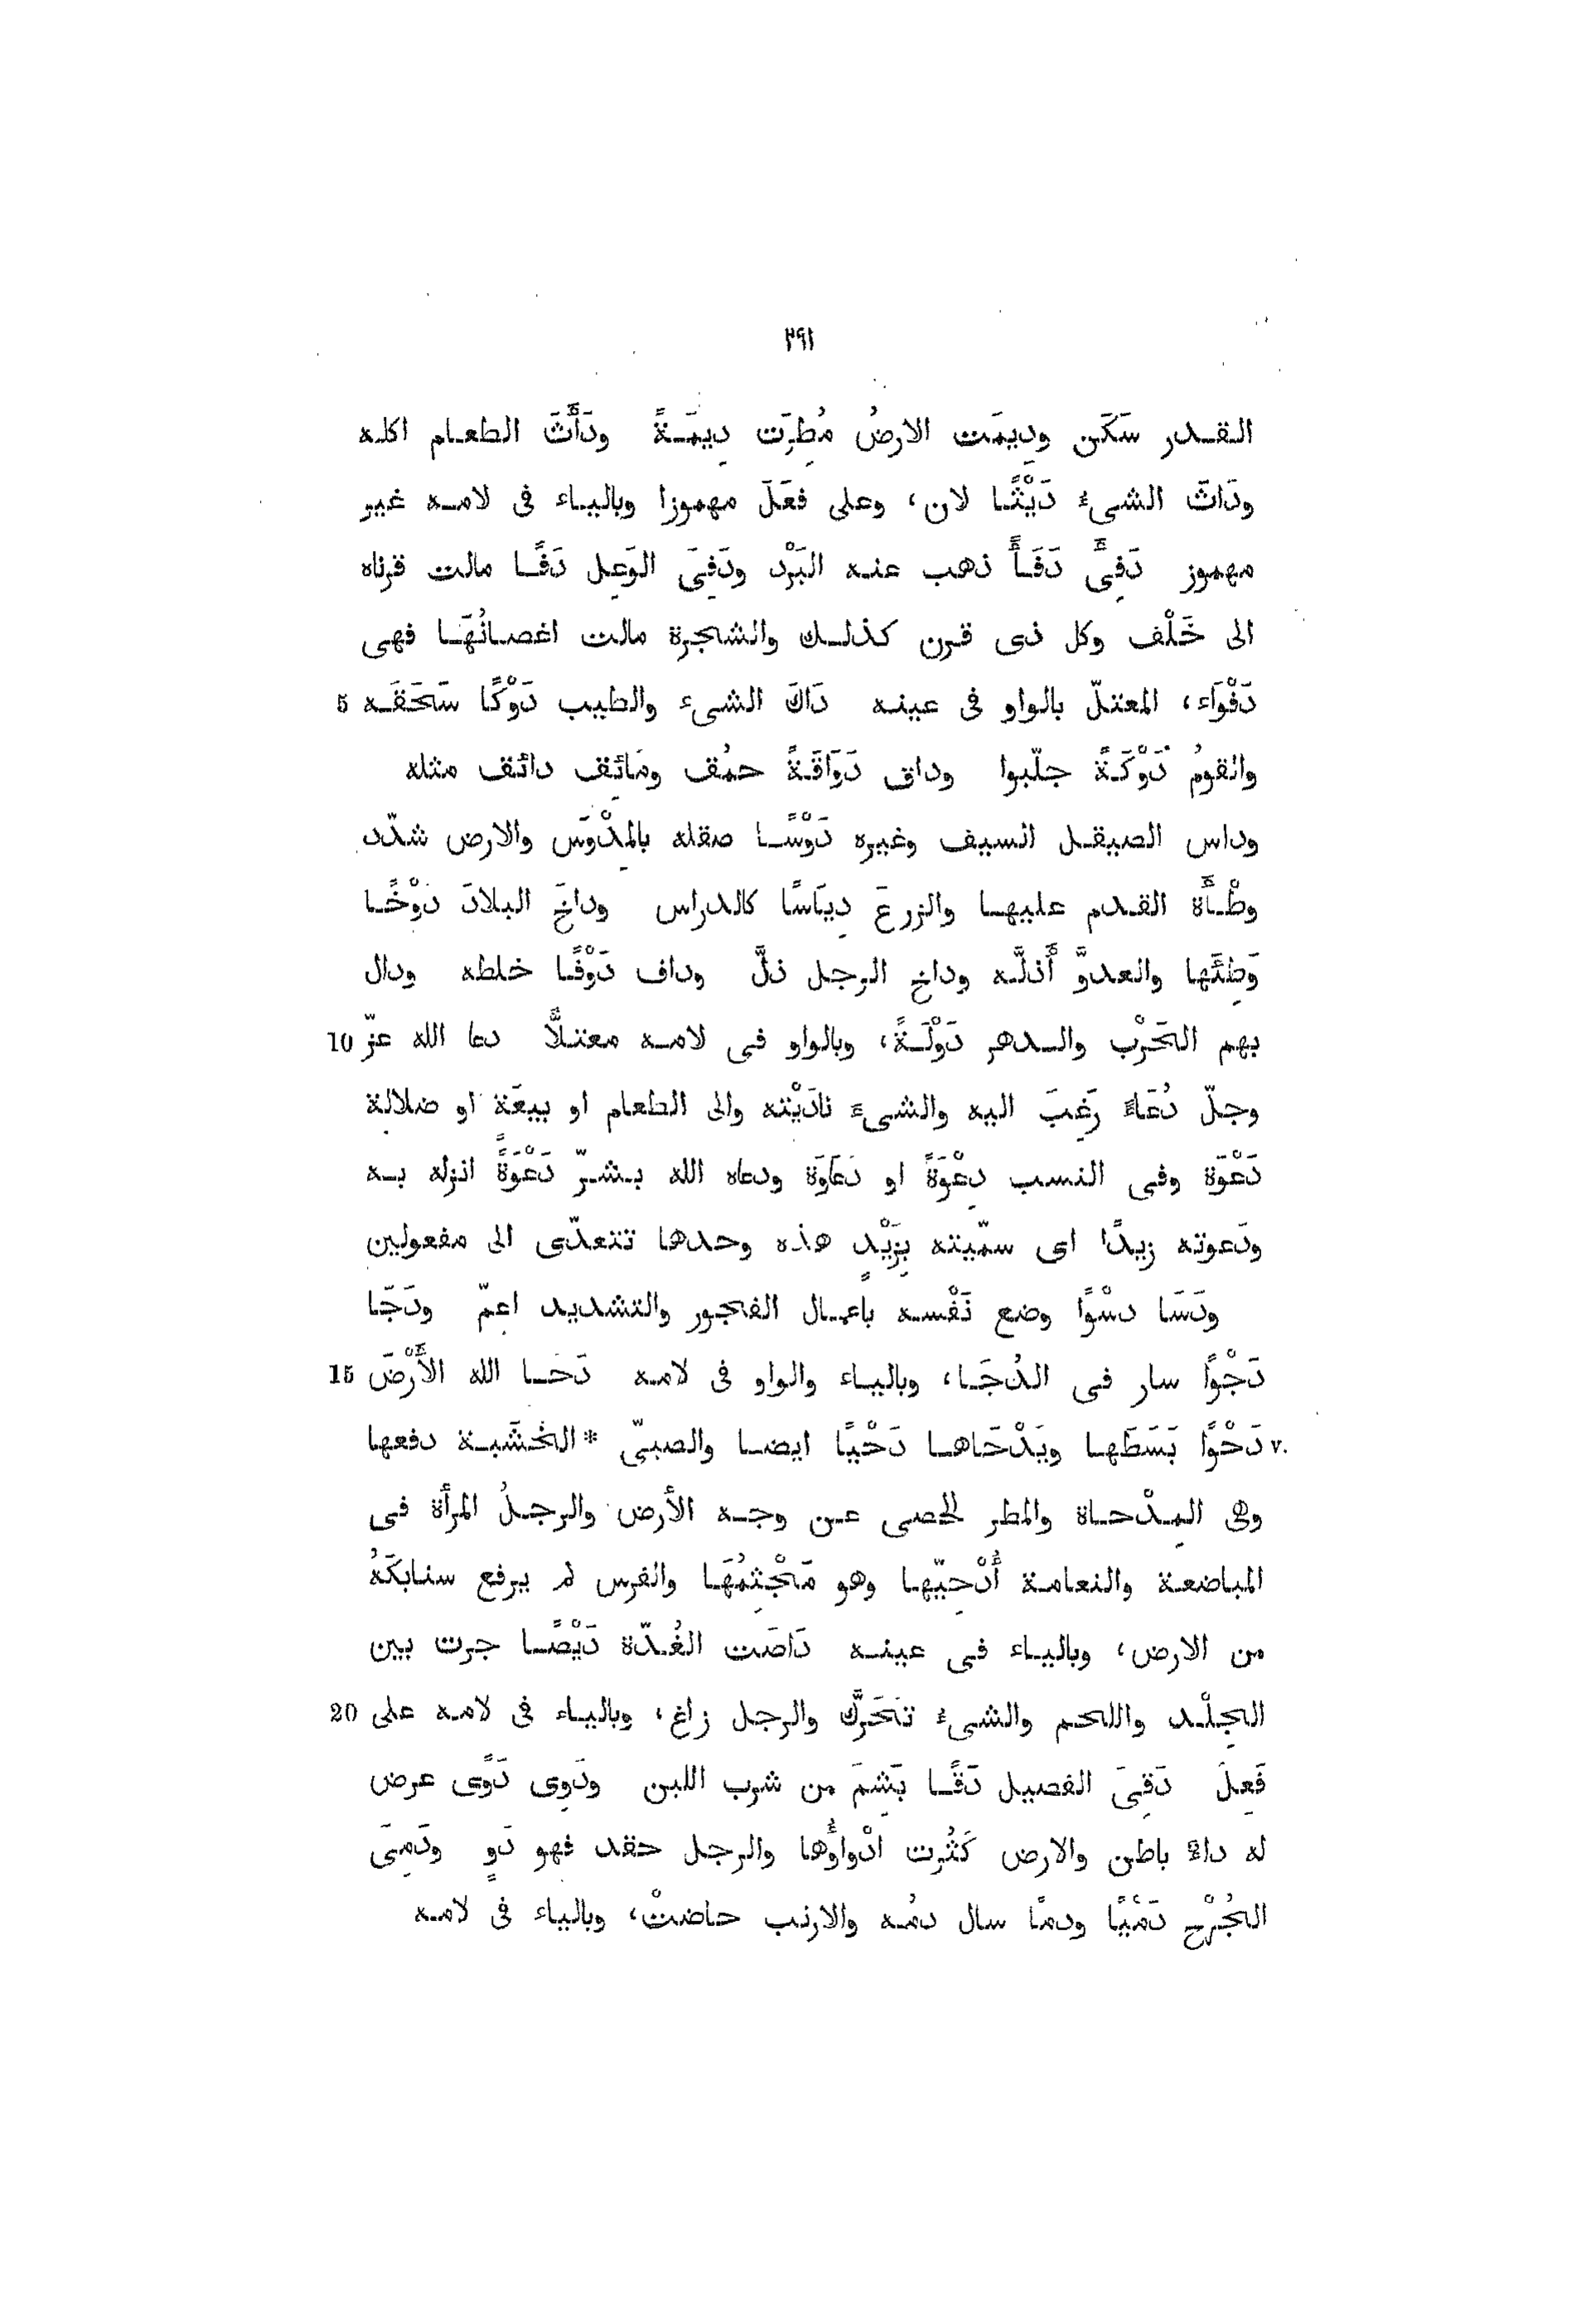 ٢٩١
القدر سَكَن ودِيمَت الارضُ مُطِرَت دِيمَةً ودَأَثَ الطعام اكله
ودَاثَ الشىءُ دَيْثًا لان، وعلى فَعَلَ مهموزا وبالياء فى لامه غير
مهموز دَفِئَ دَفَأً ذهب عنه البَرْد ودَفِىَ الوَعِل دَفًا مالت قرناه
الى خَلْف وكل ذى قرن كذلك والشجرة مالت اغصانُهَا فهى
دَفْوَاء، المعتلّ بالواو فى عينه دَاكَ الشىء والطيب دَوْكًا سَحَقَه 5
والقومُ دَوْكَةً جلّبوا وداق دَوَاقَةً حمُق ومَائِق دائق مثله
وداس الصيقل السيف وغيره دَوْسًا صقله بالمِدْوَس والارض شدّد
وطْأَة القدم عليها والزرعَ دِيَاسًا كالدراس وداخَ البلادَ دَوْخًا
وَطِئَها والعدوَّ أَذلَّه وداخ الرجل ذلَّ وداف دَوْفًا خلطه ودال
بهم الحَرْب والدهر دَوْلَةً، وبالواو فى لامه معتلًّا دعا الله عزّ 10
وجلّ دُعَاءً رَغِبَ اليه والشىءَ نادَيْته والى الطعام او بيعَة او ضلالة
دَعْوَة وفى النسب دِعْوَةً او دَعَاوَة ودعاه الله بشرّ دَعْوَةً انزله به
ودَعوته زيدًا اى سمّيته بِزَيْدٍ هذه وحدها تتعدّى الى مفعولين
ودَسَا دسْوًا وضع نَفْسه باعمال الفجور والتشديد اعمّ ودَجَا
دَجْوًا سار فى الدُجَا، وبالياء والواو فى لامه دَحَا الله الأَرْضَ 15
v. دَحْوًا بَسَطَها ويَدْحَاها دَحْيًا ايضا والصبىّ * الخَشَبة دفعها
وهى المِدْحاة والمطر الحصى عن وجه الأرض والرجلُ المرأة فى
المباضعة والنعامة أُدْحِيّها وهو مَجْثِمُهَا والفرس لم يرفع سنابكَهُ
من الارض، وبالياء فى عينه دَاصَت الغُدّة دَيْصًا جرت بين
الجِلْد واللحم والشىءُ تَحَرَّك والرجل زاغ، وبالياء فى لامه على 20
فَعِلَ دَقِىَ الفصيل دَقًا بَشِمَ من شرب اللبن ودَوِى دَوًى عرض
له داءٌ باطن والارض كَثُرت ادْواؤُها والرجل حقد فهو دَوٍ ودَمِىَ
الجُرْح دَمْيًا ودمًا سال دمُه والارنب حاضتْ، وبالياء فى لامه